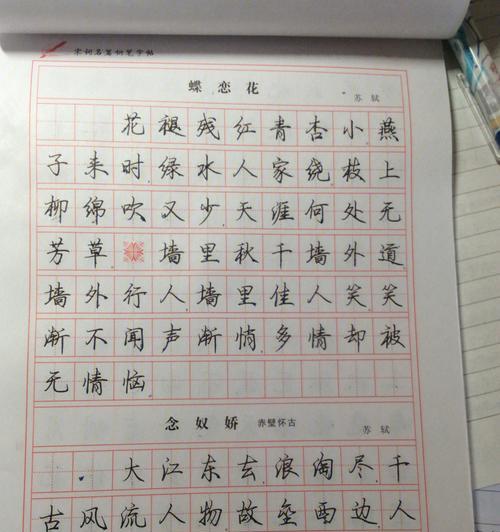 宋词名篇钢笔字帖
蝶恋花
苏轼
花褪残红青杏小燕
子来时绿水人家绕枝上
柳绵吹又少天涯何处无
芳草 墙里秋千墙外道
墙外行人墙里佳人笑笑
渐不闻声渐悄多情却被
无情恼
念奴娇 赤壁怀古
苏轼
大江东去浪淘尽千
古风流人物故垒西边人